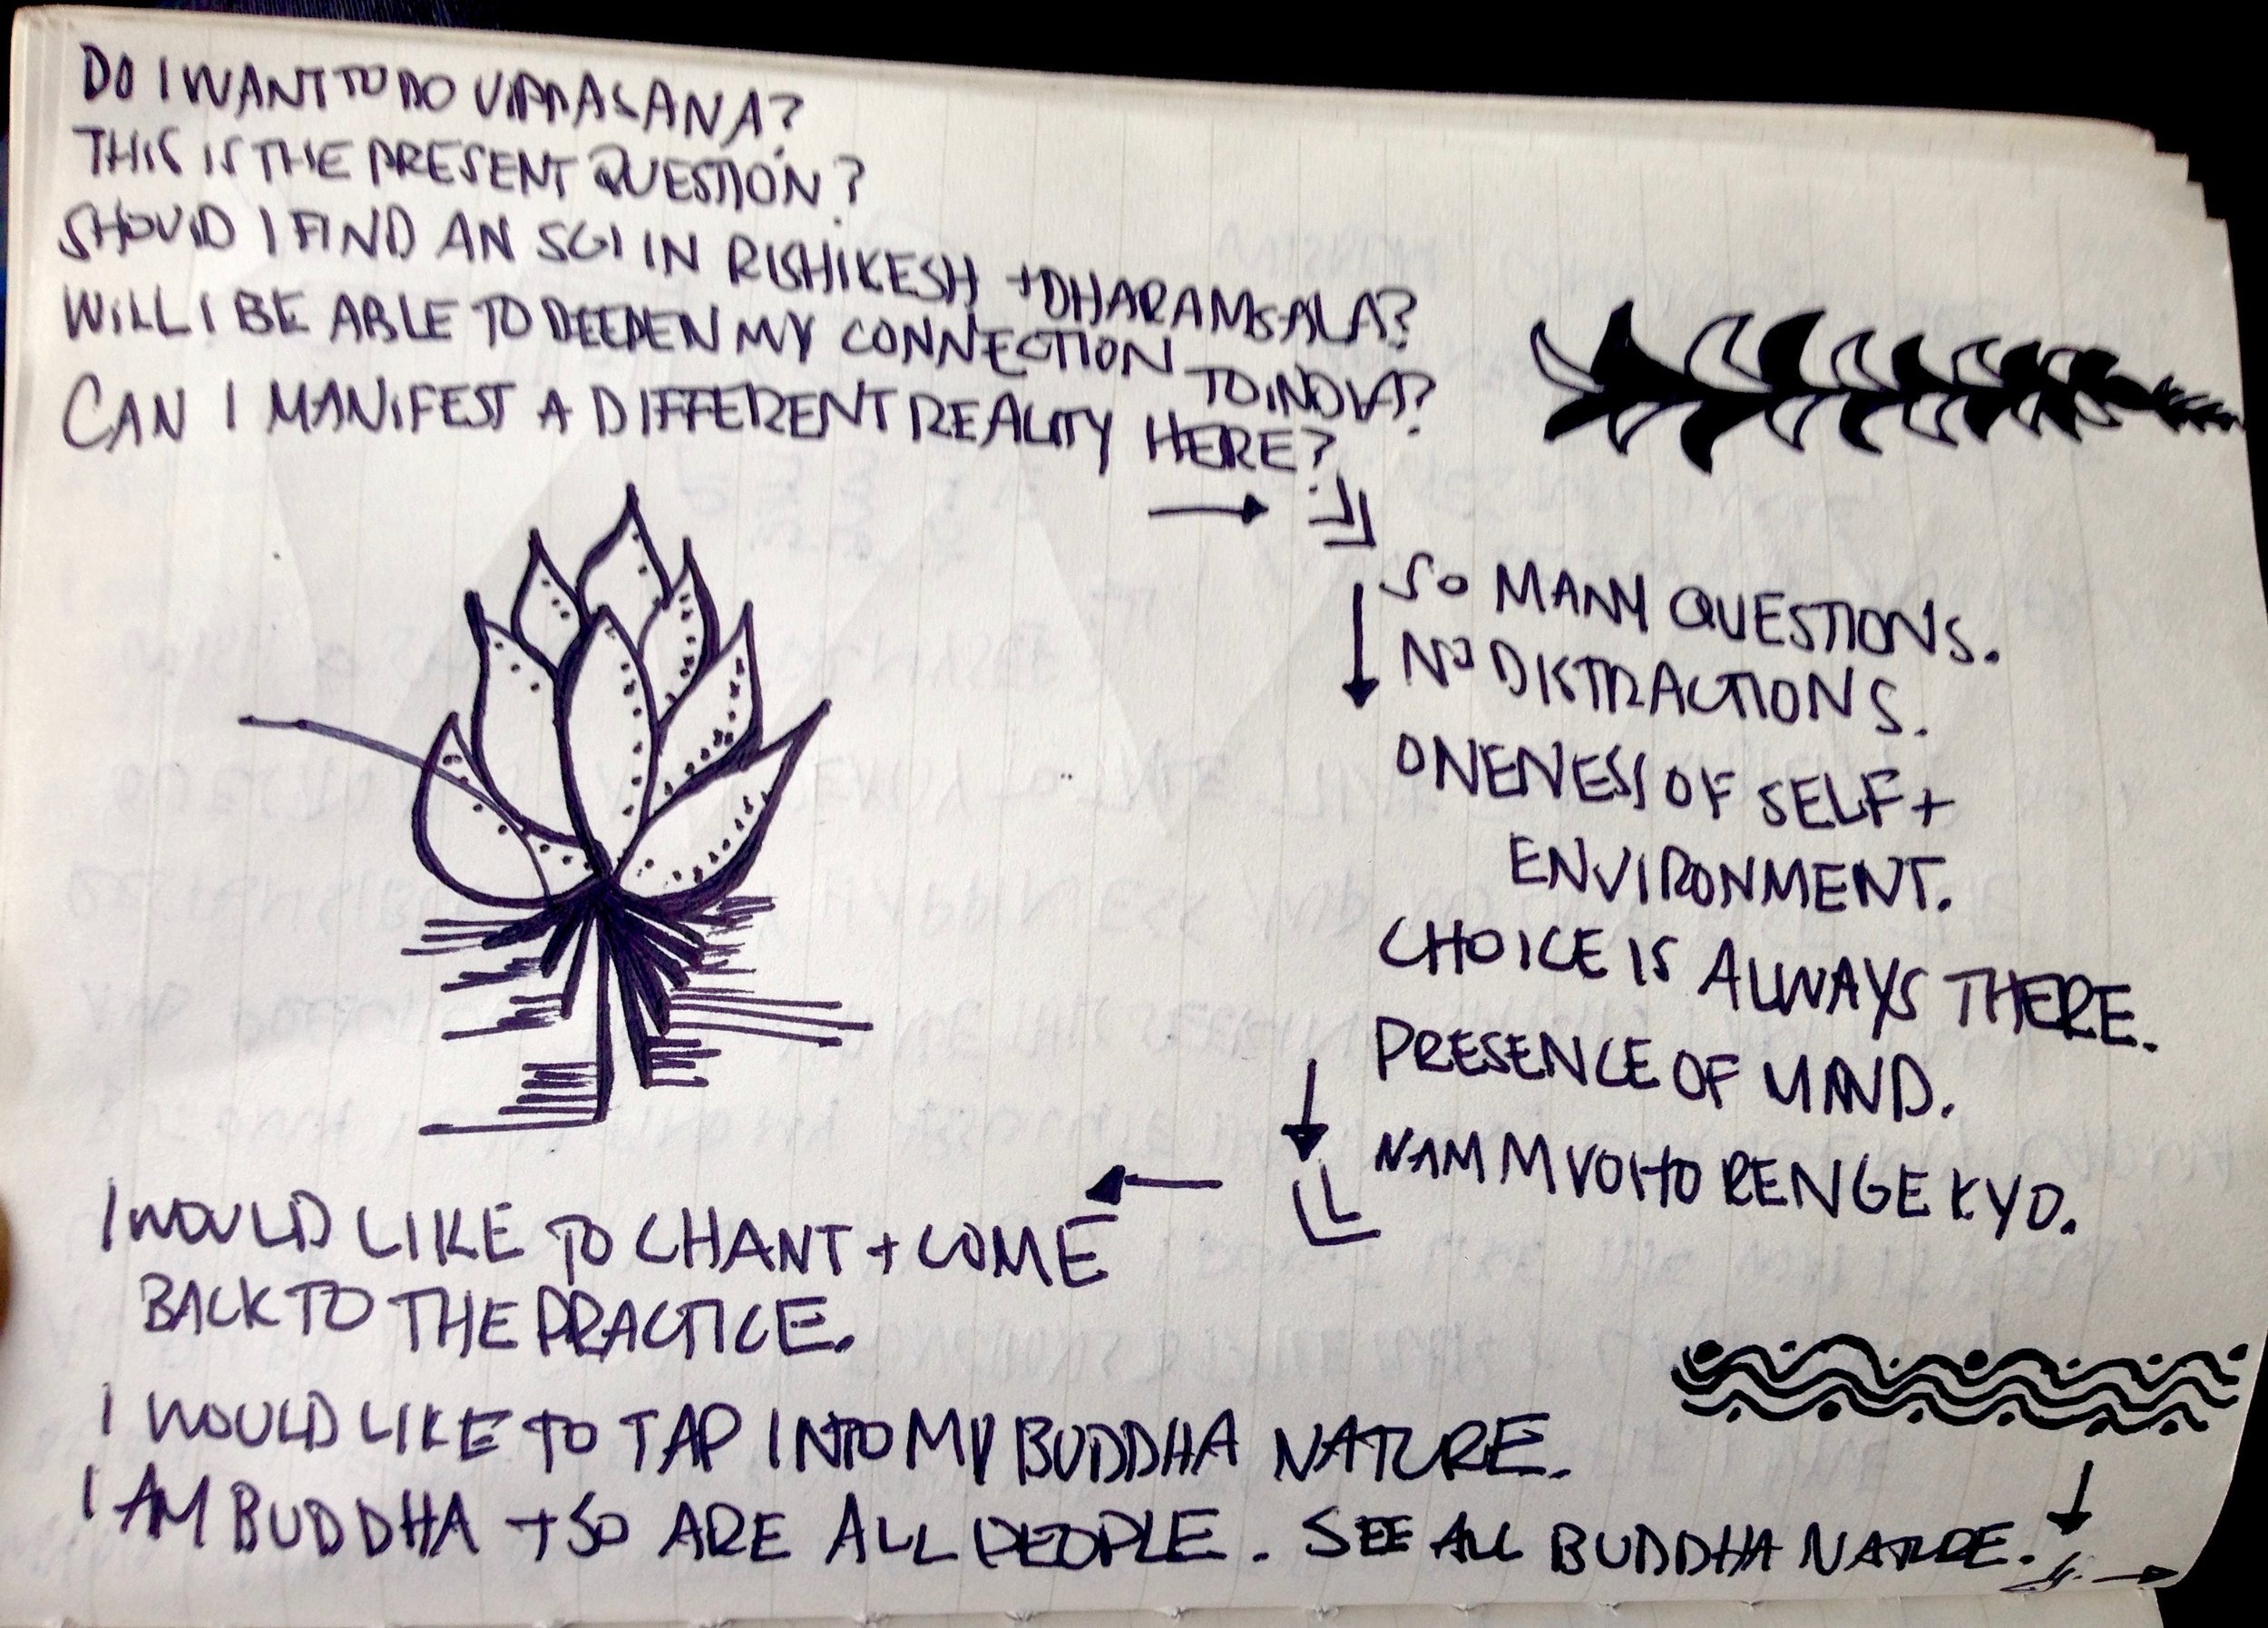 DO I WANT TO DO VIPPASANA?
THIS IS THE PRESENT QUESTION?
SHOULD I FIND AN SGI IN RISHIKESH + DHARAMSALA?
WILL I BE ABLE TO DEEPEN MY CONNECTION TO INDIA?
CAN I MANIFEST A DIFFERENT REALITY HERE?
SO MANY QUESTIONS.
NO DISTRACTIONS.
ONENESS OF SELF +
ENVIRONMENT.
CHOICE IS ALWAYS THERE.
PRESENCE OF MIND.
NAM MYOHO RENGE KYO.
I WOULD LIKE TO CHANT + COME
BACK TO THE PRACTICE.
I WOULD LIKE TO TAP INTO MY BUDDHA NATURE.
I AM BUDDHA + SO ARE ALL PEOPLE. SEE ALL BUDDHA NATURE.